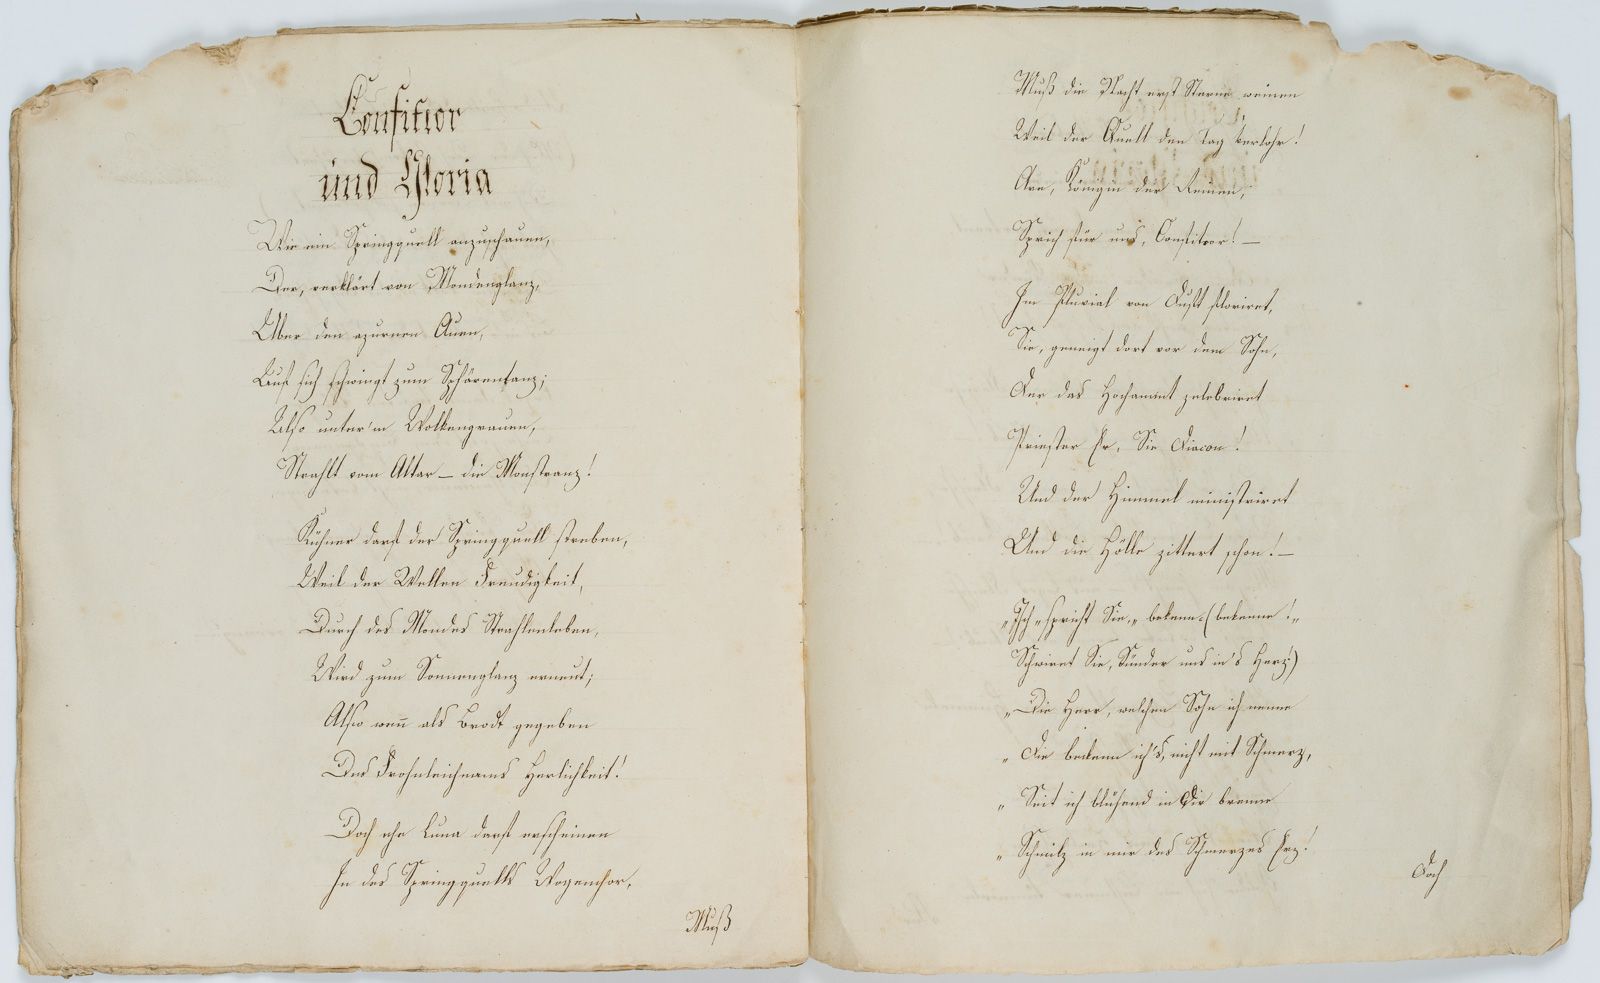 Confitior
und Gloria
Wie ein Springquell anzuschauen,
Der, verklärt von Mondenglanz,
Über den azurnen Auen,
Luft sich schwingt zum Sphärentanz;
Also unter'm Wolkengrauen,
Strahlt vom Altar – die Monstranz!
Kühner darf der Springquell streben,
Weil der Wellen Freudigkeit,
Durch des Mondes Strahlenleben,
Wird zum Sonnenglanz erneut;
Also weñ als Brodt gegeben
Des Frohnleichnams Herlichkeit!
Doch ehe Luna darf erscheinen
In des Springquells Wogenchor,
Muß
Muß die Nacht erst Sterne weinen
Weil der Quell den Tag verlohr!
Ave, Königin der Reinen,
Sprich für uns, Confiteor! –
Im Pluvial von Duft floriret,
Sie, geneigt dort vor dem Sohn,
Der das Hochammt zelebriret
Priester Er, Sie Diacon!
Und der Himmel ministriret
Und die Hölle zittert schon! –
„Ich„ spricht Sie, „ bekenn- (bekenne!„
Schwiret Sie, Sünder uns in's Herz!)
„Die Herr, welchen Sohn ich nenne
„ Die bekenn ich's, nicht mit Schmerz,
„ Seit ich blühend in Dir brenne
„ Schmilz in mir des Schmerzes Erz!
Doch